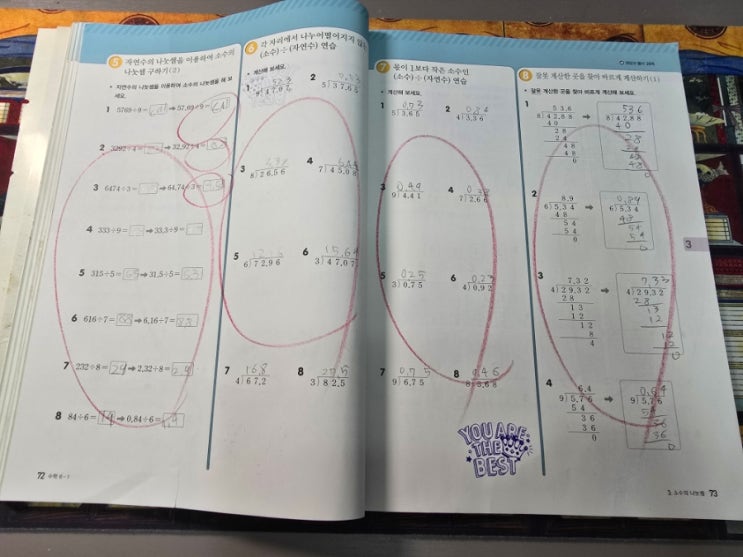 5 자연수의 나눗셈을 이용하여 소수의
나눗셈 구하기(2)
자연수의 나눗셈을 이용하여 소수의 나눗셈을 해 보
세요.
1 5769÷9= ➡ 57.69÷9=
2 3292÷4= ➡ 32.92÷4=
3 6474÷3= ➡ 64.74÷3=
4 333÷9= ➡ 33.3÷9=
5 315÷5=63 ➡ 31.5÷5=6.3
6 616÷7=88 ➡ 6.16÷7=
7 232÷8=29 ➡ 2.32÷8=
8 84÷6=14 ➡ 0.84÷6=
72 수학 6-1
6 각 자리에서 나누어떨어지지 않는
(소수)÷(자연수) 연습
계산해 보세요.
1
2
5)3.765
3
8)26.56
4
7)45.08
5
6)72.96
6 15.64
3)47.07
7 168
4)67.2
8 275
3)82.5
7 몫이 1보다 작은 소수인
(소수)÷(자연수) 연습
계산해 보세요.
1 0.73
5)3.65
2 0.84
4)3.36
3 0.49
9)4.41
4 0.38
7)2.66
5 0.25
3)0.75
6 0.23
4)0.92
7 0.75
9)6.75
8 0.46
8)3.68
YOU ARE
THE
BEST
8 잘못 계산한 곳을 찾아 바르게 계산하기(1)
잘못 계산한 곳을 찾아 바르게 계산해 보세요.
1 53.6 ➡ 5.36
8)42.88 8)42.88
40 40
28 28
24 24
48 48
48 48
0 0
2 8.9 ➡ 0.89
6)5.34 6)5.34
48 48
54 54
54 54
0 0
3 7.32 ➡ 7.33
4)29.32 4)29.32
28 28
13 13
12 12
12 12
8 12
4 0
4 6.4 ➡ 0.64
9)5.76 9)5.76
54 54
36 36
36 36
0 0
3
3. 소수의 나눗셈 73